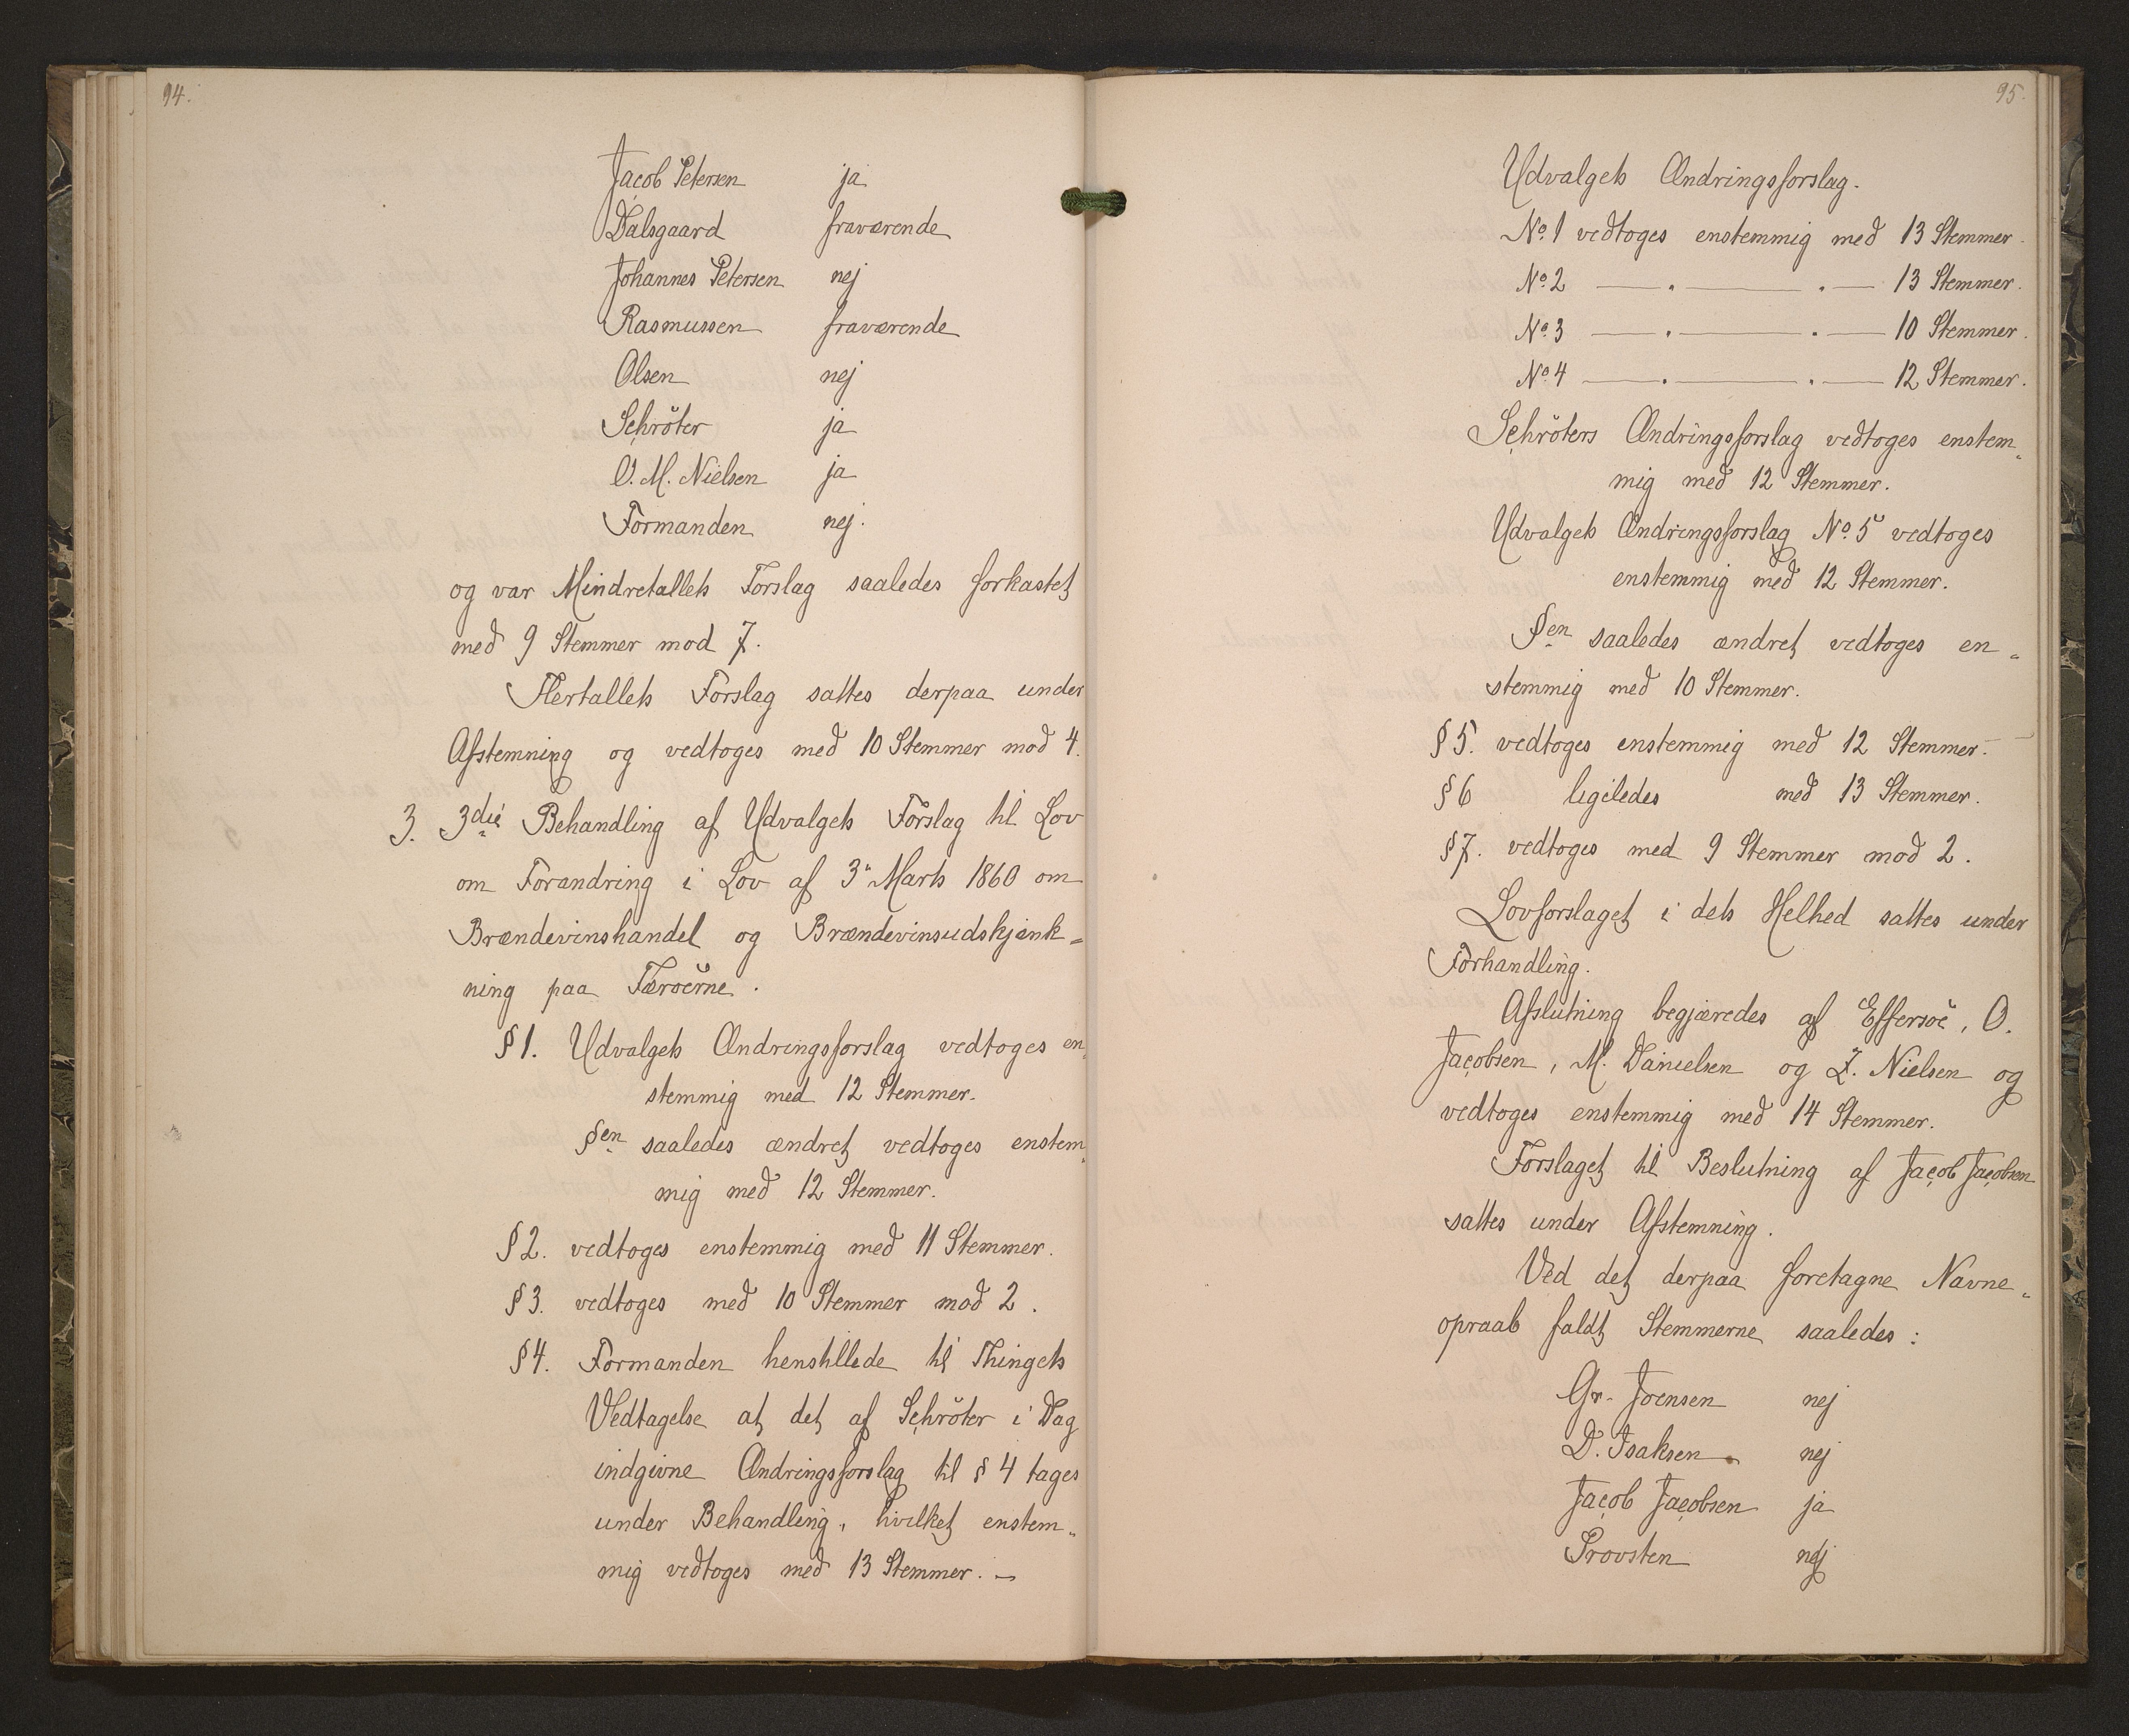 94.
Jacob Petersen ja
Dalsgaard fraværende
Johannes Petersen nej
Rasmussen fraværende
Olsen nej
Schröter ja
O. M. Nielsen ja
Formanden nej.
og var Mindretallets Forslag saaledes forkastet
med 9 Stemmer mod 7.
Flertallets Forslag sattes derpaa under
Afstemning og vedtoges med 10 Stemmer mod 4.
3. 3die Behandling af Udvalgets Forslag til Lov
om Forandring i Lov af 3" Marts 1860 om
Brændevinshandel og Brændevinsudskjænk-
ning paa Færöerne.
§ 1. Udvalgets Ændringsforslag vedtoges en-
stemmig med 12 Stemmer.
§en saaledes ændret vedtoges enstem-
mig med 12 Stemmer.
§ 2. vedtoges enstemmig med 11 Stemmer.
§ 3. vedtoges med 10 Stemmer mod 2.
§ 4. Formanden henstillede til Thingets
Vedtagelse at det af Schröter i Dag
indgivne Ændringsforslag til § 4 tages
under Behandling, hvilket enstem-
mig vedtoges med 13 Stemmer. —
95.
Udvalgets Ændringsforslag.
No. 1 vedtoges enstemmig med 13 Stemmer.
No. 2 — . — . — 13 Stemmer.
No. 3 — . — . — 10 Stemmer.
No. 4 — . — . — 12 Stemmer.
Schröters Ændringsforslag vedtoges enstem-
mig med 12 Stemmer.
Udvalgets Ændringsforslag No. 5 vedtoges
enstemmig med 12 Stemmer.
§en saaledes ændret vedtoges en-
stemmig med 10 Stemmer.
§ 5. vedtoges enstemmig med 12 Stemmer.
§ 6 ligeledes med 13 Stemmer.
§ 7. vedtoges med 9 Stemmer mod 2.
Lovforslaget i dets Helhed sattes under
Forhandling.
Afslutning begjæredes af Effersöe, O.
Jacobsen, M. Danielsen og Z. Nielsen og
vedtoges enstemmig med 14 Stemmer.
Forslaget til Beslutning af Jacob Jacobsen
sattes under Afstemning.
Ved det derpaa foretagne Navne-
opraab faldt Stemmerne saaledes:
Gr. Joensen nej
D. Isaksen nej
Jacob Jacobsen ja
Provsten nej